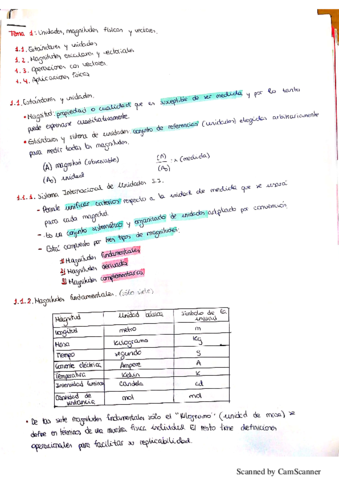 Tema 1: Unidades, magnitudes físicas y vectores.
1.1. Estándares y unidades
1.2. Magnitudes escalares y vectoriales
1.3. Operaciones con vectores.
1.4. Aplicaciones físicas
1.1. Estándares y unidades.
• Magnitud: propiedad o cualidad que es susceptible de ser medida y por lo tanto
puede expresarse cuantitativamente.
• Estándares y sistema de unidades: conjunto de referencias (unidades) elegidas arbitrariamente
para medir todas las magnitudes.
(A) magnitud (observable) (A)/(A₀) = λ (medida)
(A₀) unidad
1.1.1. Sistema Internacional de Unidades S.I.
- Permite unificar criterios respecto a la unidad de medida que se usará
para cada magnitud.
- Es un conjunto sistemático y organizado de unidades adoptado por convención
- Está compuesto por tres tipos de magnitudes:
1) Magnitudes fundamentales
2) Magnitudes derivadas
3) Magnitudes complementarias
1.1.2. Magnitudes fundamentales. (Sólo siete)
Magnitud Unidad básica Símbolo de la unidad
Longitud metro m
Masa kilogramo kg
Tiempo segundo s
Corriente eléctrica Ampere A
Temperatura Kelvin K
Intensidad luminosa Candela cd
Cantidad de sustancia mol mol
• De las siete magnitudes fundamentales solo el "kilogramo" (unidad de masa) se
define en términos de una muestra física individual. El resto tiene definiciones
operacionales para facilitar su replicabilidad.
Scanned by CamScanner